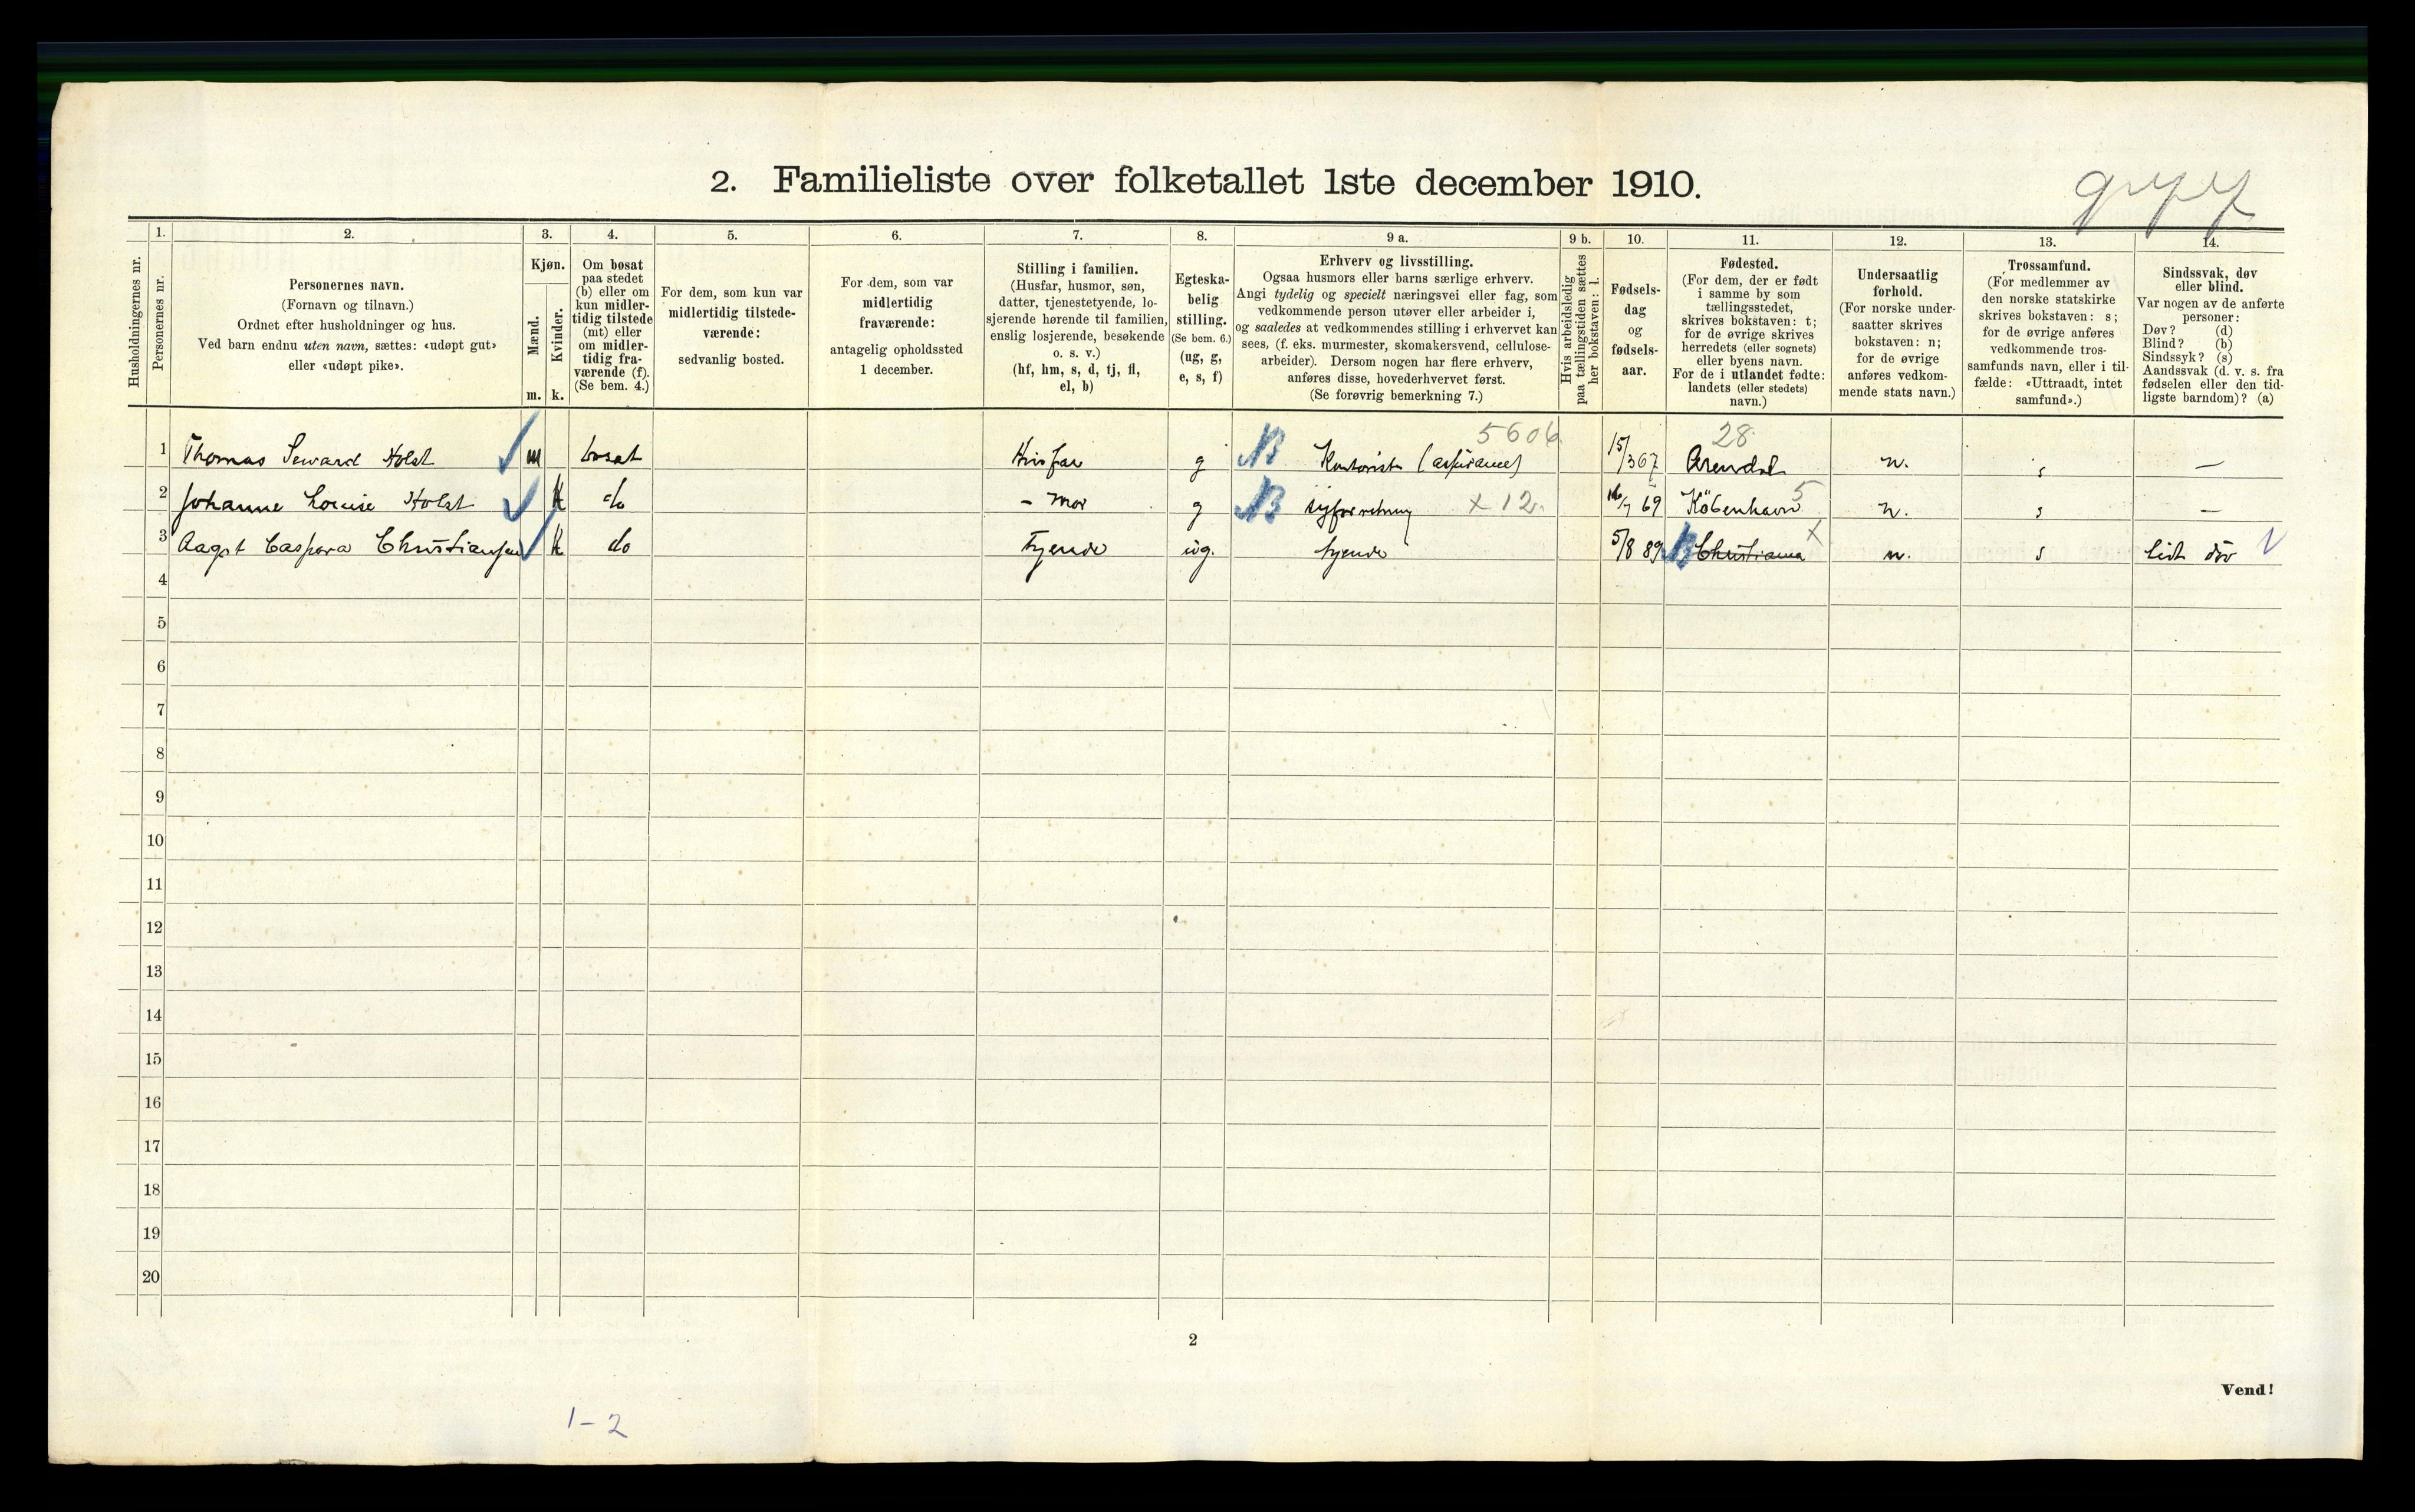 2. Familieliste over folketallet 1ste december 1910.
Husholdningernes nr.
1.
Personernes nr.
2.
Personernes navn.
(Fornavn og tilnavn.)
Ordnet efter husholdninger og hus.
Ved barn endnu uten navn, sættes: «udøpt gut»
eller «udøpt pike».
3.
Kjøn.
Mænd.
Kvinder.
m. k.
4.
Om bosat
paa stedet
(b) eller om
kun midler-
tidig tilstede
(mt) eller
om midler-
tidig fra-
værende (f).
(Se bem. 4.)
5.
For dem, som kun var
midlertidig tilstede-
værende:
sedvanlig bosted.
6.
For dem, som var
midlertidig
fraværende:
antagelig opholdssted
1 december.
7.
Stilling i familien.
(Husfar, husmor, søn,
datter, tjenestetyende, lo-
sjerende hørende til familien,
enslig losjerende, besøkende
o. s. v.)
(hf, hm, s, d, tj, fl,
el, b)
8.
Egteska-
belig
stilling.
(Se bem. 6.)
(ug, g,
e, s, f)
9 a.
Erhverv og livsstilling.
Ogsaa husmors eller barns særlige erhverv.
Angi tydelig og specielt næringsvei eller fag, som
vedkommende person utøver eller arbeider i,
og saaledes at vedkommendes stilling i erhvervet kan
sees, (f. eks. murmester, skomakersvend, cellulose-
arbeider). Dersom nogen har flere erhverv,
anføres disse, hovederhvervet først.
(Se forøvrig bemerkning 7.)
9 b.
Hvis arbeidsledig
paa tællingstiden sættes
her bokstaven: l.
10.
Fødsels-
dag
og
fødsels-
aar.
11.
Fødested.
(For dem, der er født
i samme by som
tællingsstedet,
skrives bokstaven: t;
for de øvrige skrives
herredets (eller sognets)
eller byens navn.
For de i utlandet fødte:
landets (eller stedets)
navn.)
12.
Undersaatlig
forhold.
(For norske under-
saatter skrives
bokstaven: n;
for de øvrige
anføres vedkom-
mende stats navn.)
13.
Trossamfund.
(For medlemmer av
den norske statskirke
skrives bokstaven: s;
for de øvrige anføres
vedkommende tros-
samfunds navn, eller i til-
fælde: «Uttraadt, intet
samfund».)
14.
Sindssvak, døv
eller blind.
Var nogen av de anførte
personer:
Døv? (d)
Blind? (b)
Sindssyk? (s)
Aandssvak (d. v. s. fra
fødselen eller den tid-
ligste barndom)? (a)
5606 28
1 Thomas Seward Holst m bosat Husfar g NB Kontorist (aspirance) 15/3 67 Arendal n. s —
2 Johanne Louise Holst k do - mor g NB x 12. 16/7 69 Köbenhavn 5 n. s —
3 Aagot Caspara Christiansen k do Tjende ug. tjende 5/8 89 NB Christiania x n. s lidt döv
4
5
6
7
8
9
10
11
12
13
14
15
16
17
18
19
20
2
Vend!
1-2